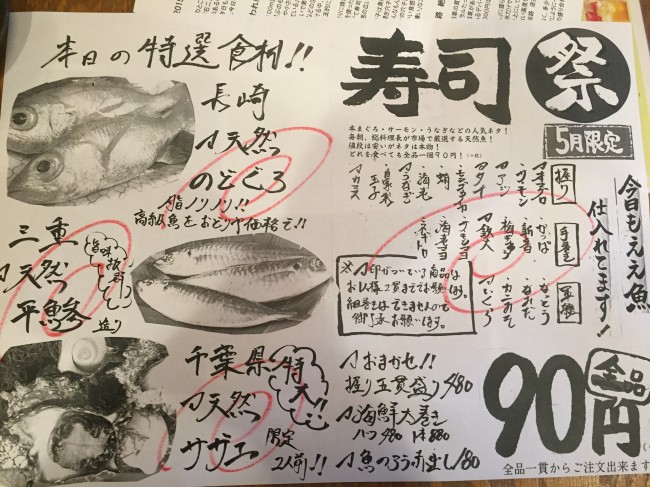 本日の特選食材!!
長崎
天然
のどぐろ
脂ノリノリ!!
高級魚をお手頃価格で!!
三重
天然
平鯵
旨味抜群
造り
千葉県
特大!!
天然
サザエ
限定
2人前!!
寿司
祭
5月限定
本まぐろ・サーモン・うなぎなどの人気ネタ!
毎朝、総料理長が市場で厳選する天然魚!
値段は安いがネタは本物!
どれを食べても全品一個90円!
今日もええ魚
仕入れてます!
握り
・サーモン
・アジ
・タイ
・蛸
・海老
・うなぎ
・玉子
手巻き
・かっぱ
・新香
・梅きゅう
・鉄火
・ネギトロ
軍艦
・なっとう
・カニみそ
・いくら
※印がついている商品は
お1人様2貫まででお願いします。
細巻きはできませんので
御了承お願いします。
おまかせ!!
握り五貫盛り 480
海鮮太巻き
ハーフ480 1本880
魚のアラ赤出し180
全品
90円
全品一貫からご注文出来ます